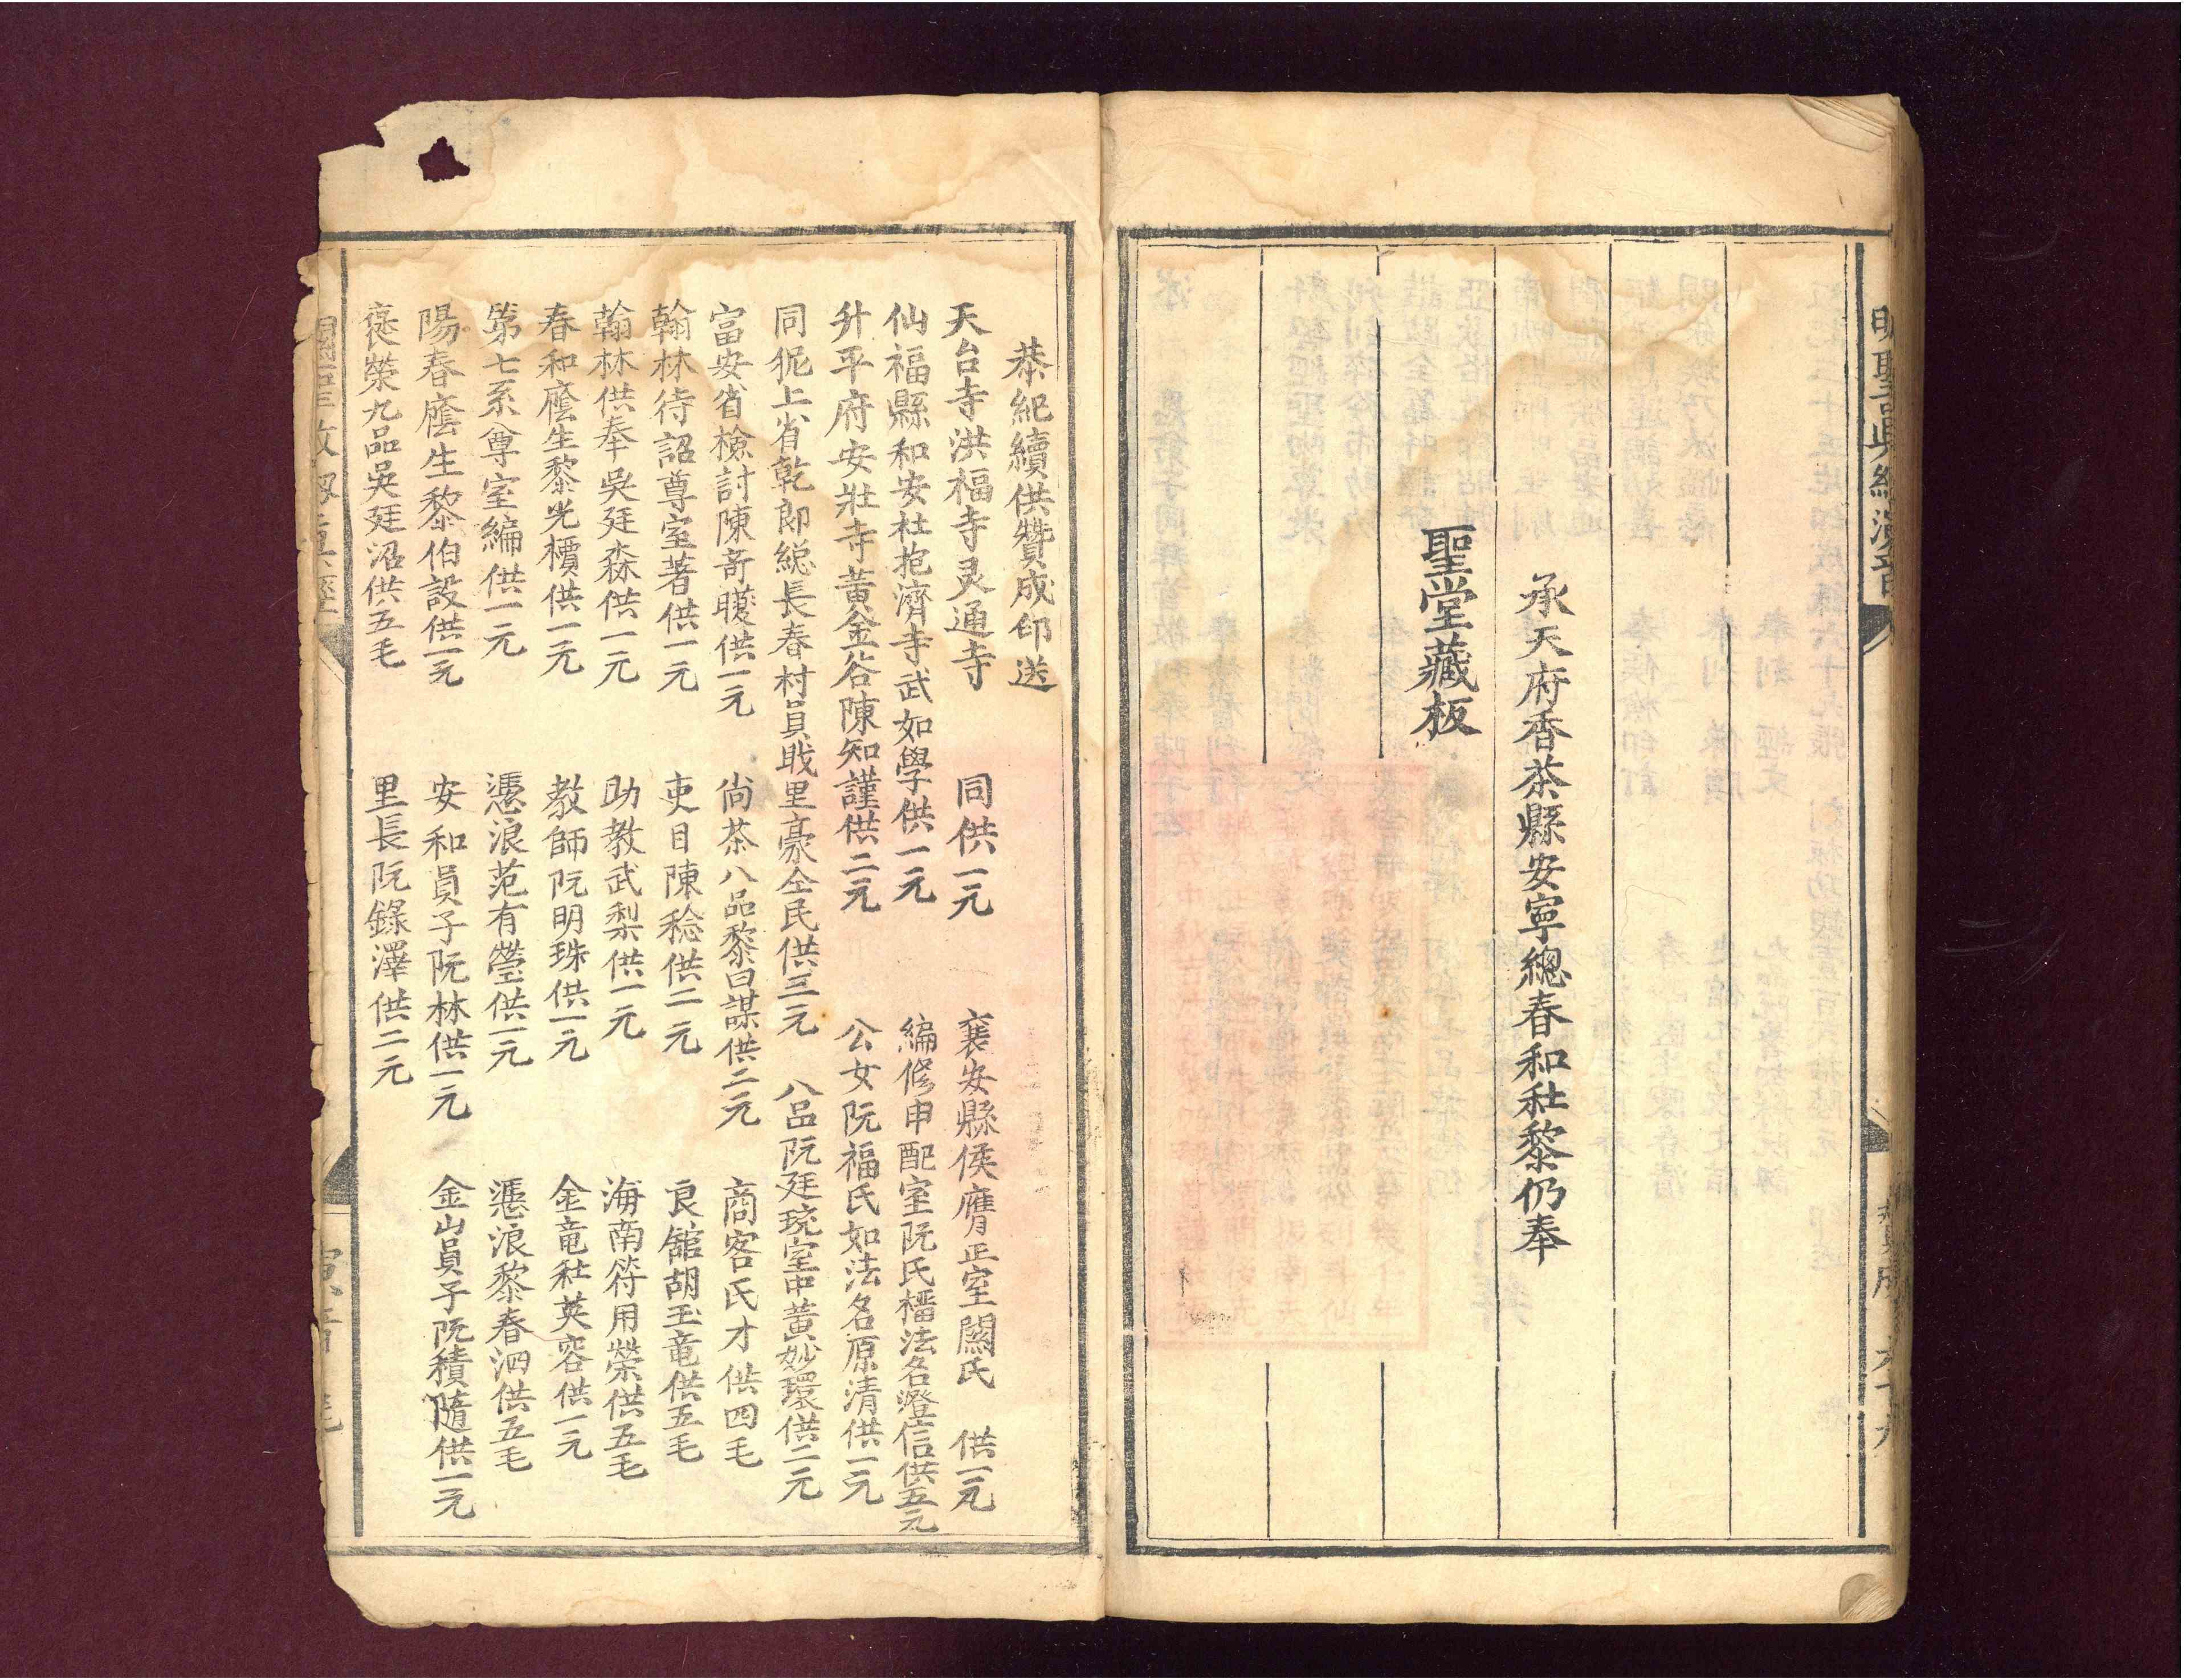 明聖經演音
贊成 六十九
承天府香茶縣安寧總春和社黎仍奉
聖堂藏板
恭紀續供贊成印送
天台寺洪福寺灵通寺 同供一元 襄安縣侯膺正室闗氏 供一元
仙福縣和安社抱濟寺武如學供一元 編修申配室阮氏櫺法名澄信供五元
升平府安壯寺黃金谷陳知謹供二元 公女阮福氏如法名原清供一元
同狔上省乾郎総長春村員戝里豪仝民供三元 八品阮廷琬室中黃妙環供二元
富安省檢討陳奇𦡶供一元 尚茶八品黎曰謀供二元 商客氏才供四毛
翰林待詔尊室著供一元 吏目陳稔供二元 良舘胡玉竜供五毛
翰林供奉吳廷森供一元 助教武梨供一元 海南符用榮供五毛
春和廕生黎光櫝供一元 教師阮明珠供一元 金竜社英容供一元
第七系尊室編供一元 憑浪范有瑩供一元 憑浪黎春泗供五毛
陽春廕生黎伯設供一元 安和員子阮林供一元 金山員子阮積隨供一元
裦榮九品吳廷沼供五毛 里長阮錄澤供二元